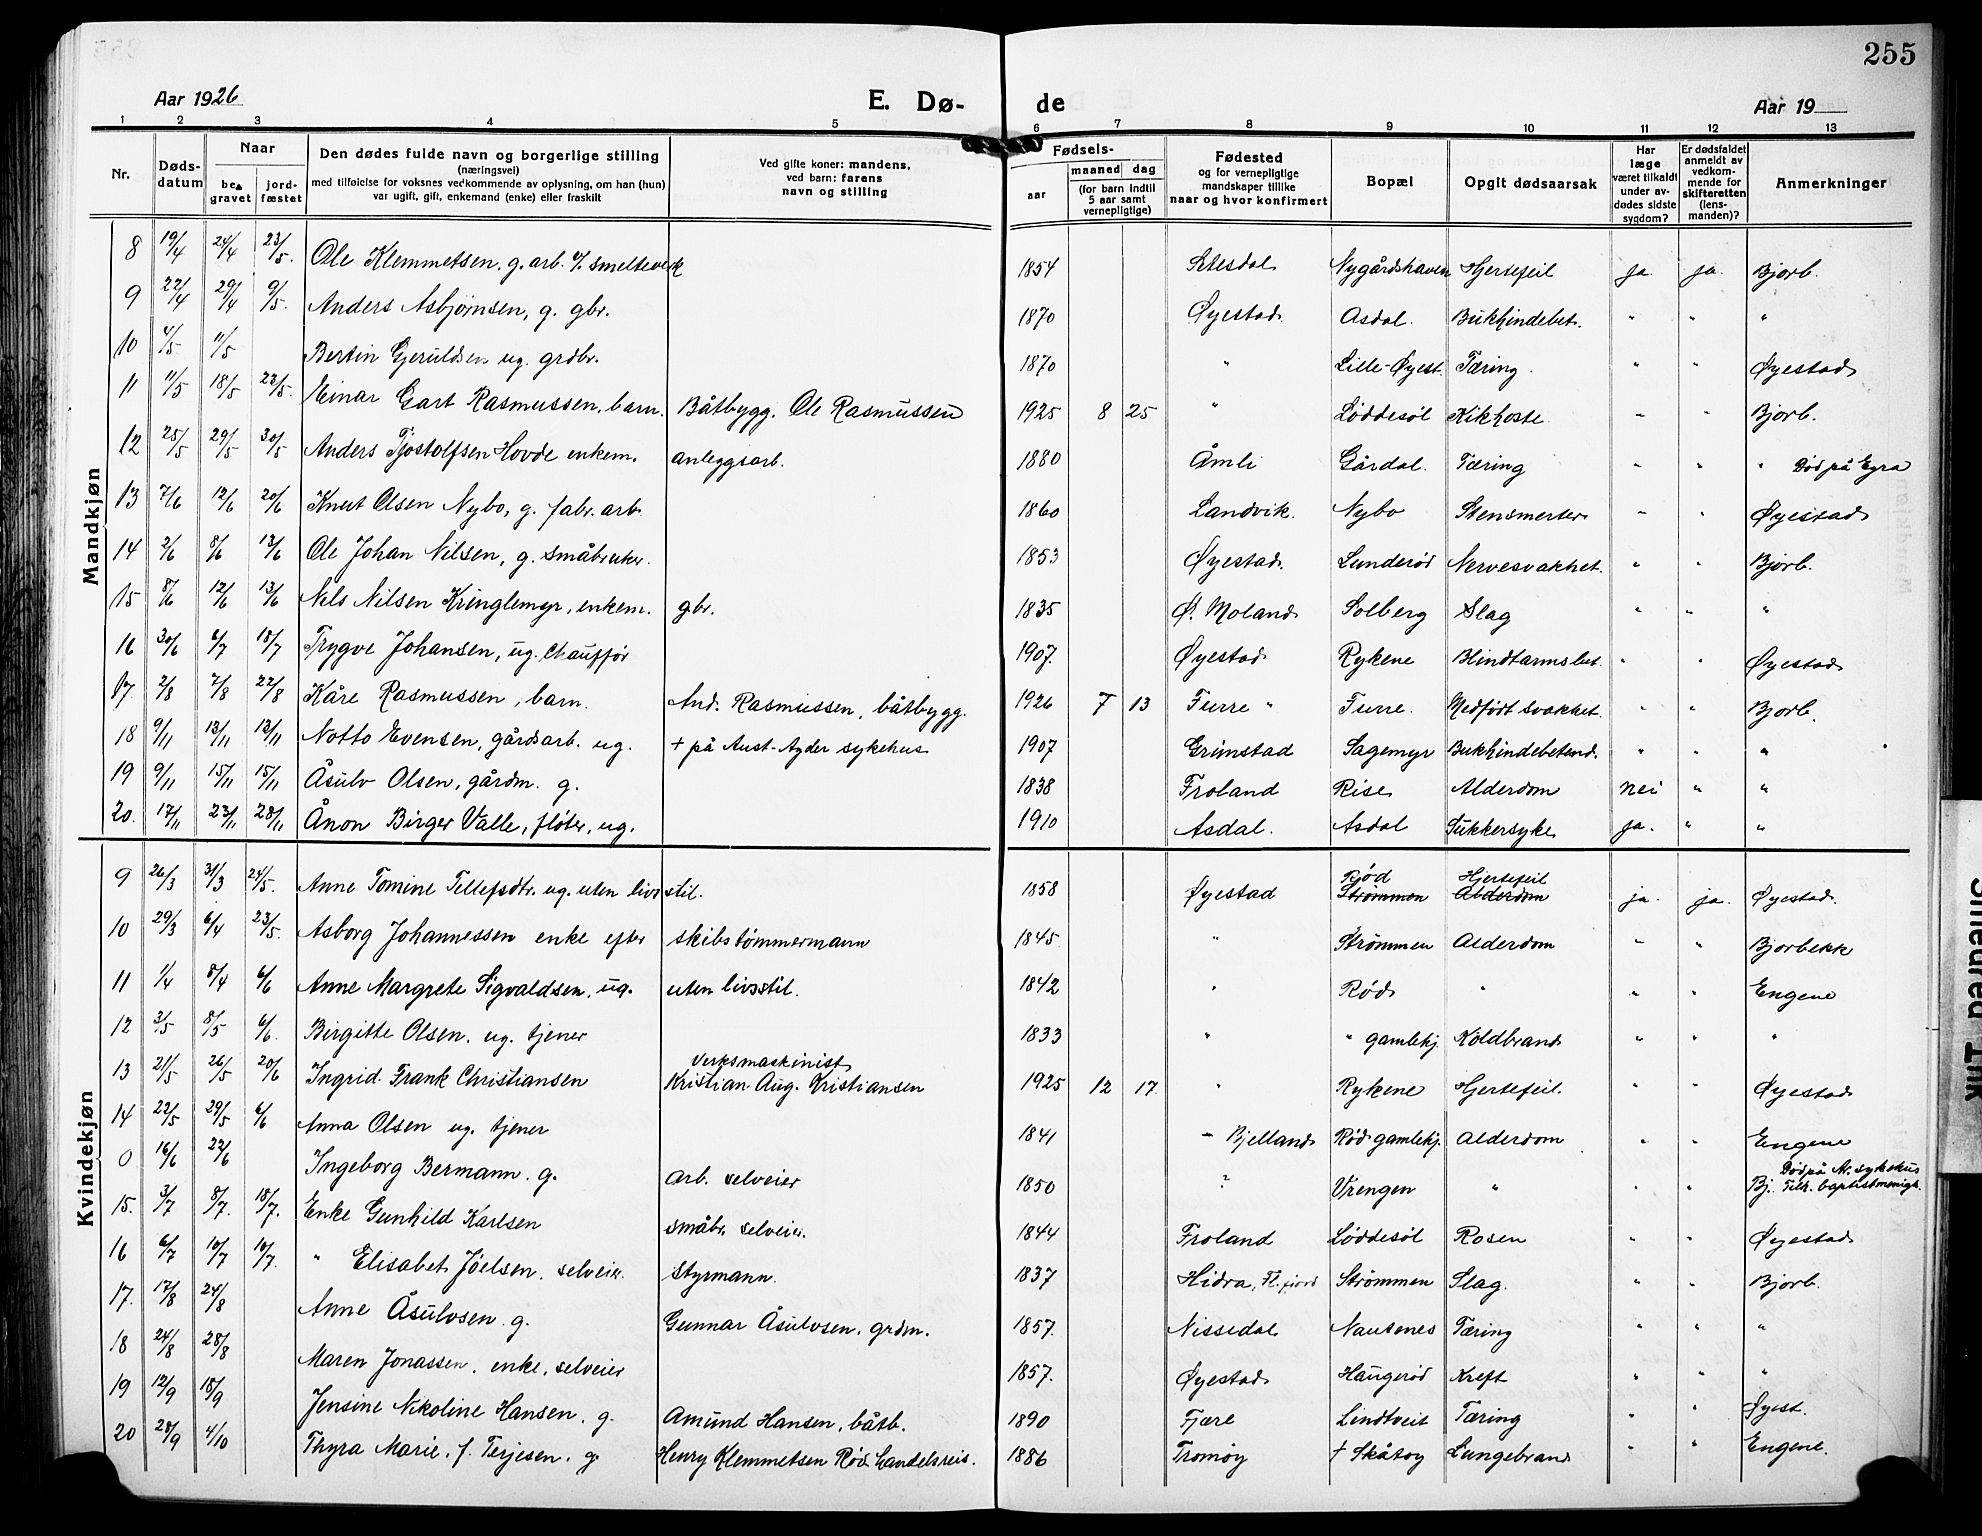 255
Aar 1926
E. Dø-
de
Aar 19
1 2 3 4 5 6 7 8 9 10 11 12 13
Nr.
Døds-
datum
Naar
be-
gravet
jord-
fæstet
Den dødes fulde navn og borgerlige stilling
(næringsvei)
med tilføielse for voksnes vedkommende av oplysning, om han (hun)
var ugift, gift, enkemand (enke) eller fraskilt
Ved gifte koner: mandens,
ved barn: farens
navn og stilling
Fødsels-
aar
maaned dag
(for barn indtil
5 aar samt
vernepligtige)
Fødested
og for vernepligtige
mandskaper tillike
naar og hvor konfirmert
Bopæl
Opgit dødsaarsak
Har
læge
været tilkaldt
under av-
dødes sidste
sygdom?
Er dødsfaldet
anmeldt av
vedkom-
mende for
skifteretten
(lens-
manden)?
Anmerkninger
Mandkjøn
8 19/4 24/4 23/5. Ole Klemmetsen. g. arb. v/ smelteverk 1854 Setesdal Nygårdshaven Hjertefeil ja. ja. Bjorb.
9 22/4 29/4 9/5. Anders Asbjørnsen, g. gbr. 1870 Øyestad. Asdal. Bukhindebet. " " "
10 4/5 11/5 Bertin Gjeruldsen ug. grdbr. 1870 " Lille-Øyest. Tæring. " " Øyestad
11 11/5 18/5 23/5. Einar Gart Rasmussen, barn. Båtbygg. Ole Rasmussen 1925 8 25 " Løddesøl Kikhoste. " " Bjorb.
12 25/5 29/5 30/5 Anders Tjostolfsen Hovde enkem. anleggsarb. 1880 Åmli Gårdal. Tæring " " " Død på Eyra
13 7/6 12/6 20/6 Knut Olsen Nybo, g. fabr. arb. 1860 Landvik. Nybo Stensmerter " " Øyestad
14 2/6 8/6 13/6 Ole Johan Nilsen, g. småbruker. 1853 Øyestad. Lunderød Nervesvakhet. " " Bjorb.
15 8/6 12/6 13/6 Nels Nilsen Kringlemyr, enkem. gbr. 1835 Ø. Moland Solberg Slag " " "
16 30/6 6/7 18/7 Trygve Johansen, ug. Chauffør 1907. Øyestad Rykene Blindtarmsbet. " " Øyestad
17. 2/8 7/8 22/8 Kåre Rasmussen, barn. And. Rasmussen, båtbygg. 1926 7 13 Furre " Furre. Medfødt svakhet. " " Bjorb.
18 9/11 13/11 13/11 Notto Evensen, gårdsarb. ug. + på Aust-Agder sykehus 1907 Grimstad Sagemyr Bukhindebetend. " " "
19 9/11 15/11 15/11 Åsulv Olsen, gårdm. g. 1838 Froland Rise Alderdom nei " "
20. 17/11 23/11 28/11 Ånon Birger Valle, fløter, ug. 1910 Asdal. Asdal Sukkersyke ja. " "
Kvindekjøn
9 26/3 31/3 24/5. Anne Tomine Tellefsdtr. ug. uten livsstil. 1858 Øyestad Rød Strømmen Hjertefeil Alderdom ja. ja. Øyestad.
10 29/3 6/4 23/5. Asborg Johannessen enke efter skibstømmermann 1845. " Strømmen Alderdom " " Bjorbekk
11 1/4 8/4 6/6 Anne Margrete Sigvaldsen, ug. uten livsstil. 1842 " Rød " " " Engene
12 3/5 8/5 6/6. Birgitte Olsen. ug. tjener 1833 " " gamlehj. Koldbrand " " "
13 21/5 26/5 20/6 Ingrid Frank Christiansen Verksmaskinist Kristian Aug. Kristiansen 1925 12 17. " Rykene Hjertefeil. " " Øyestad
14 22/5 29/5 6/6 Anna Olsen ug. tjener 1841 " Bjelland Rød gamlehj. Alderdom " " Engene
0 16/6 22/6 Ingeborg Bermann. g. arb. selveier 1850 ? Vrengen " " " Død på Ar. sykehus Bj. Tilh. baptistmenigh.
15. 3/7 8/7. 18/7. Enke Gunhild Karlsen småbr. selveier. 1844 Froland Løddesøl Rosen " " Øyestad
16 6/7 10/7 10/7. " Elisabet Jöelsen. selveier. Styrmann. 1837 Hidra, Fl.fjord Strømmen Slag. " " Bjorb.
17. 17/8 24/8 Anne Åsulvsen. g. Gunnar Åsulvsen, grdm. 1857. Nissedal Nautenes Tæring " " "
18 24/8 28/8 Maren Jonassen. enke, selveier 1857. Øyestad Haugerød Kreft " " "
19 12/9 18/9 Jensine Nikoline Hansen. g. Amund Hansen, båtb. 1890 Fjære Lindtveit Tæring " " Øyest.
20 28/9 4/10 Thyra Marie, f. Terjesen. g. Henry Klemmetsen Rød Handelsreis. 1886 Tromøy + Skåtøy Lungebrand " " Engene.